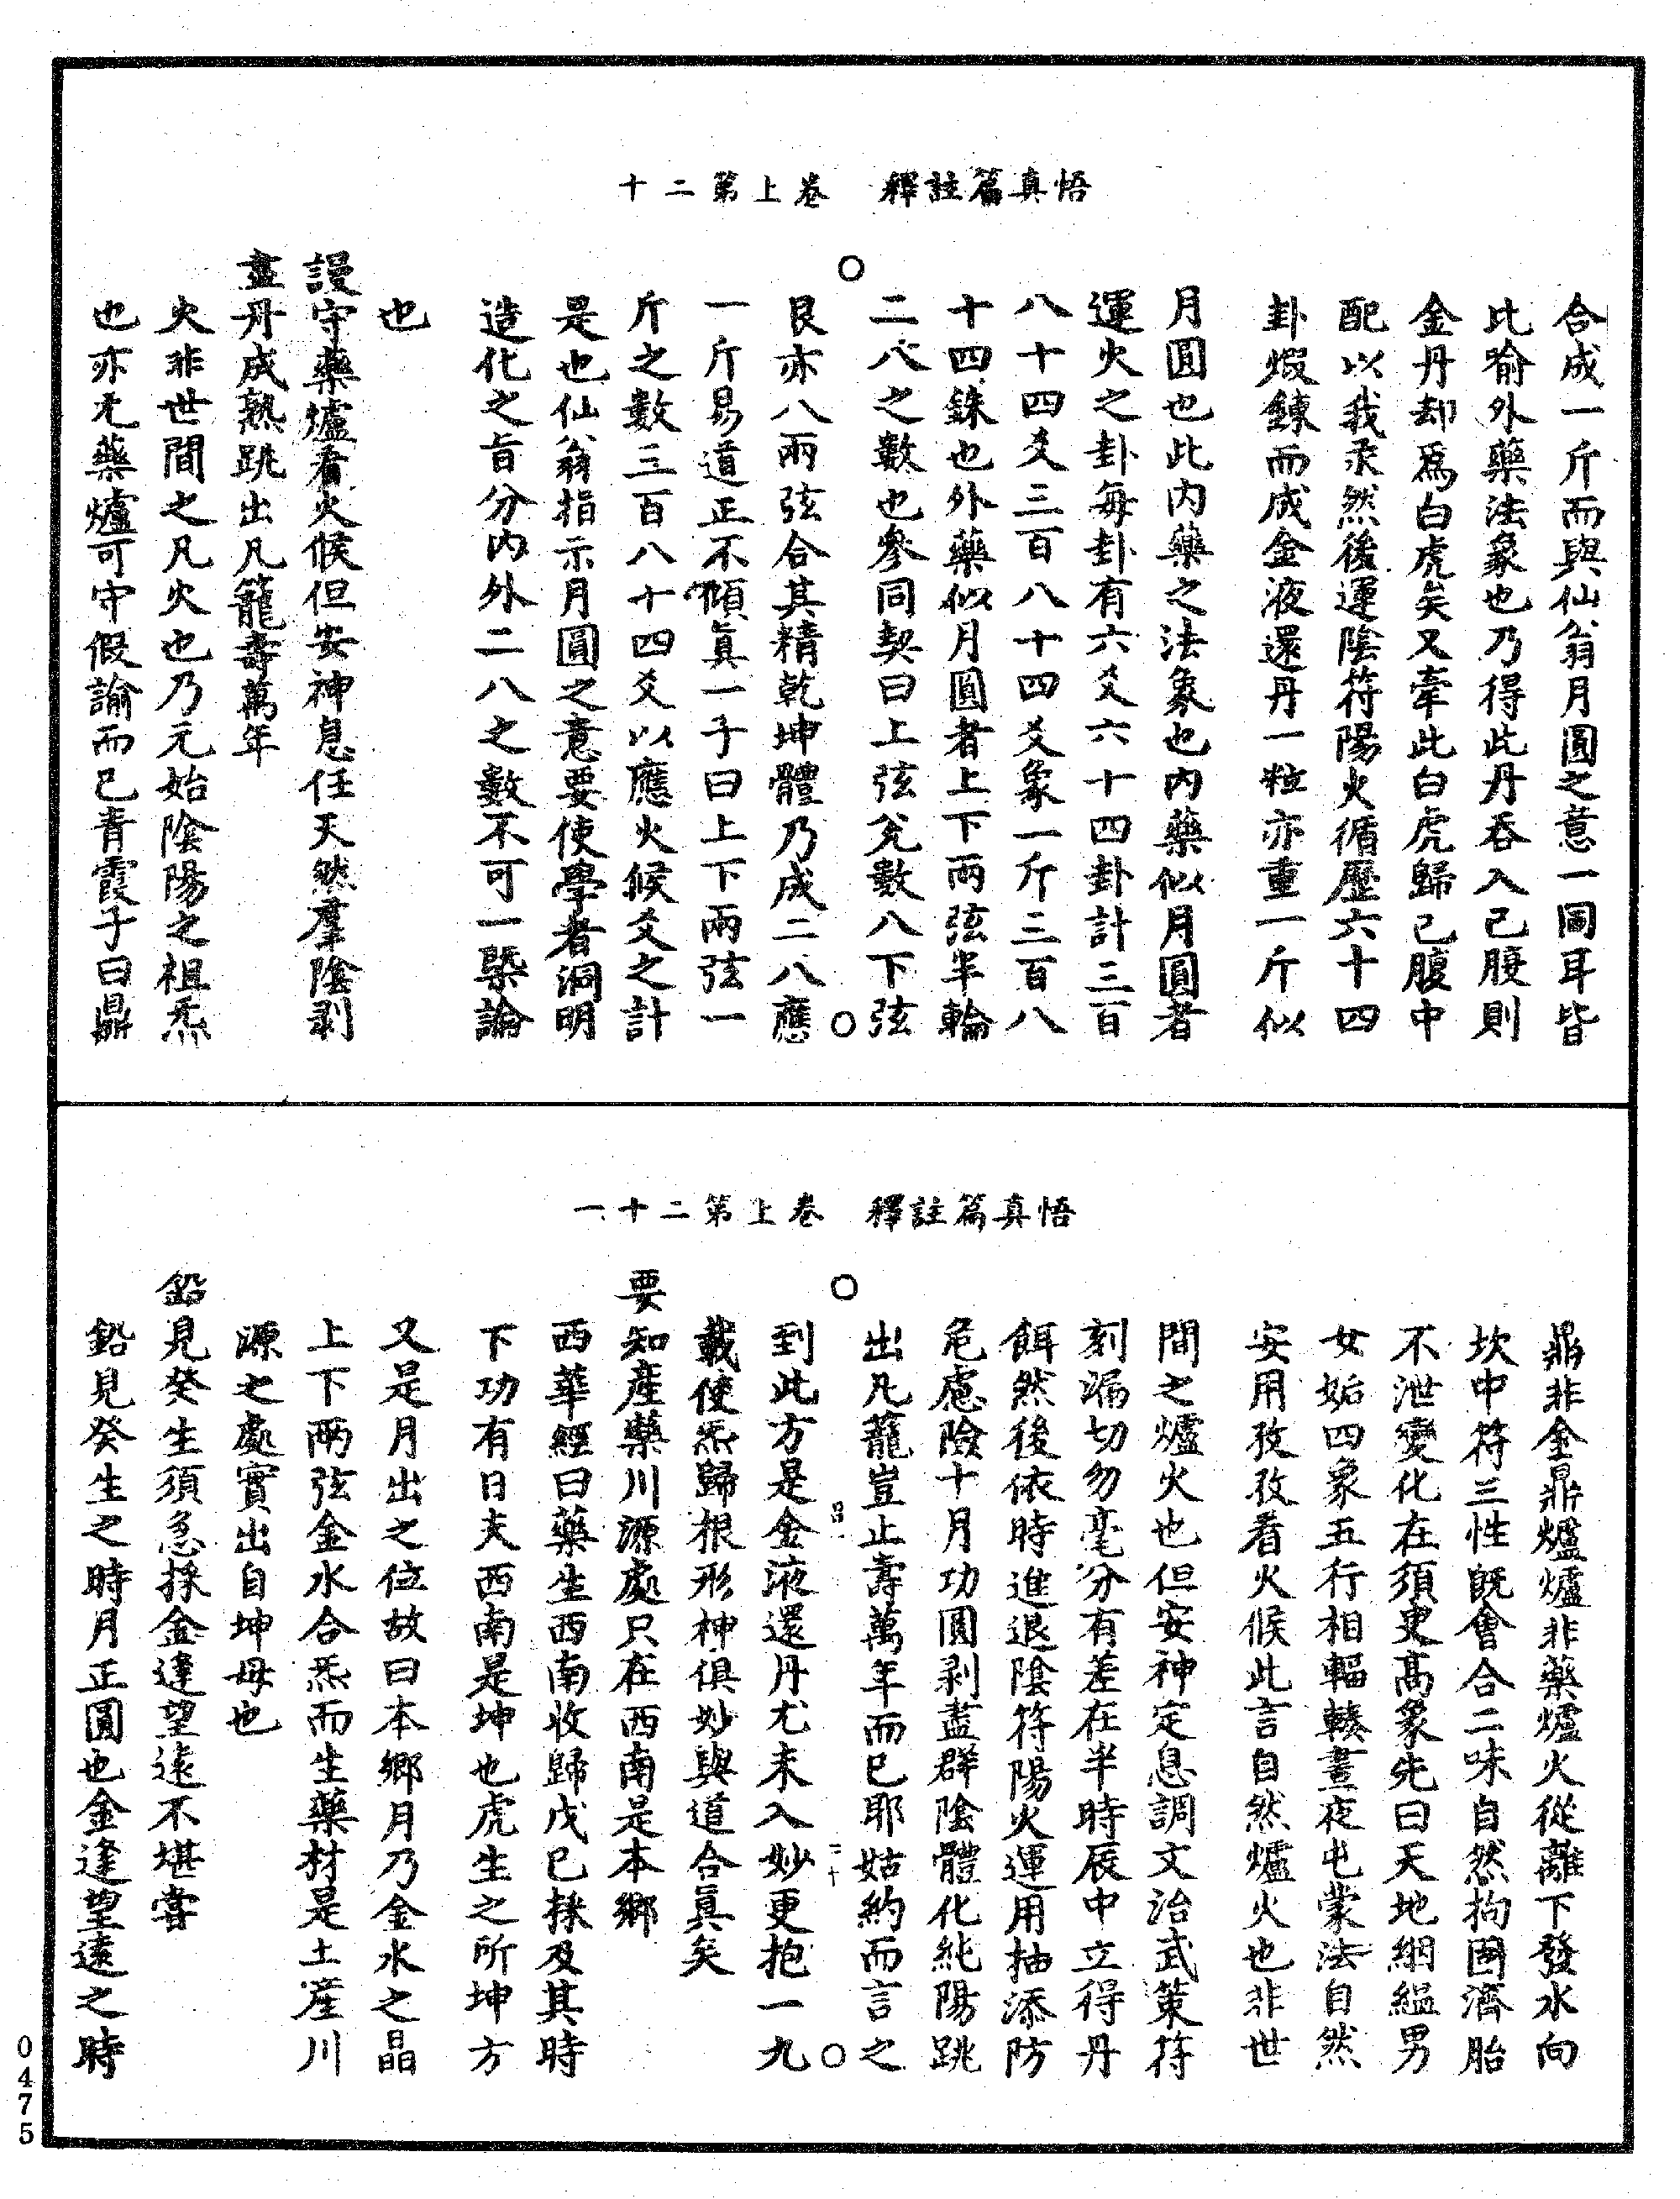 悟真篇註釋　卷上第二十
合成一斤而與仙翁月圓之意一圖耳皆
比喻外藥法象也乃得此丹吞入己腹則
金丹却爲白虎矣又牽此白虎歸己腹中
配以我汞然後運陰符陽火循歷六十四
卦煆鍊而成金液還丹一粒亦重一斤似
月圓也此内藥之法象也内藥似月圓者
運火之卦每卦有六爻六十四卦計三百
八十四爻三百八十四爻象一斤三百八
十四銖也外藥似月圓者上下兩弦半輪
二八之數也參同契曰上弦兊數八下弦
艮亦八兩弦合其精乾坤體乃成二八應
一斤易道正不傾眞一子曰上下兩弦一
斤之數三百八十四爻以應火候爻之計
是也仙翁指示月圓之意要使學者洞明
造化之旨分内外二八之數不可一槩論
也
謾守藥爐看火候但安神息任天然羣陰剥
盡丹成熟跳出凡籠壽萬年
火非世間之凡火也乃元始陰陽之祖炁
也亦无藥爐可守假諭而已青霞子曰鼎
悟真篇註釋　卷上第二十一
鼎非金鼎爐爐非藥爐火從離下發水向
坎中符三性旣會合二味自然拘固濟胎
不泄變化在須臾高象先曰天地絪縕男
女姤四象五行相輻輳晝夜屯蒙法自然
安用孜孜看火候此言自然爐火也非世
間之爐火也但安神定息調文治武策符
刻漏切勿毫分有差在半時辰中立得丹
餌然後依時進退陰符陽火運用抽添防
危慮險十月功圓剥盡群陰體化純陽跳
出凡籠豈止壽萬年而已耶姑約而言之
到此方是金液還丹尤未入妙更抱一九
載使炁歸根形神俱妙與道合眞矣
要知產藥川源處只在西南是本鄉
西華經曰藥生西南收歸戊己採及其時
下功有日夫西南是坤也虎生之所坤方
又是月出之位故曰本鄉月乃金水之晶
上下兩弦金水合炁而生藥材是土産川
源之處實出自坤母也
鉛見癸生須急採金逢望遠不堪嘗
鉛見癸生之時月正圓也金逢望遠之時
0475